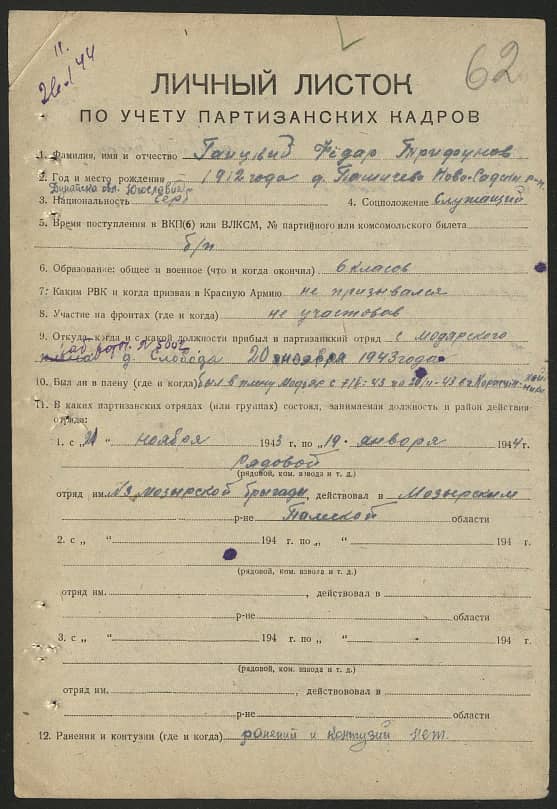 62
ЛИЧНЫЙ ЛИСТОК
ПО УЧЕТУ ПАРТИЗАНСКИХ КАДРОВ
1. Фамилия, имя и отчество Фёдар Трифунов
2. Год и место рождения 1912 года д. Пашичево Ново-Садски р-н,
обл. Югославия
3. Национальность серб 4. Соцположение Служащий
5. Время поступления в ВКП(б) или ВЛКСМ, № партийного или комсомольского билета
б/п
6. Образование: общее и военное (что и когда окончил) 6 класов
7. Каким РВК и когда призван в Красную Армию не призывался
8. Участие на фронтах (где и когда) не участовов
9. Откуда, когда и с какой должности прибыл в партизанский отряд с модарского
д. Слобода 20 ноября 1943 года
10. Был ли в плену (где и когда) был в плену
11. В каких партизанских отрядах (или группах) состоял, занимаемая должность и район действия
отряда:
1. с „21“ ноября 1943 г. по „19“ января 1944 г.
Рядовой
(рядовой, ком. взвода и т. д.)
отряд им. №3 мозырской бригады, действовал в Мозырским
р-не Палеской области
2. с „ “ 194 г. по „ “ 194 г.
(рядовой, ком. взвода и т. д.)
отряд им. , действовал в
р-не области
3. с „ “ 194 г. по „ “ 194 г.
(рядовой, ком. взвода и т. д.)
отряд им. , действововал в
р-не области
12. Ранения и контузии (где и когда) ранений и контузий нет.